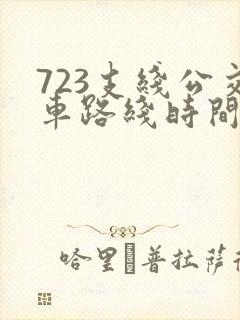 723支綫公交
車路綫時間
哈里 普拉薩